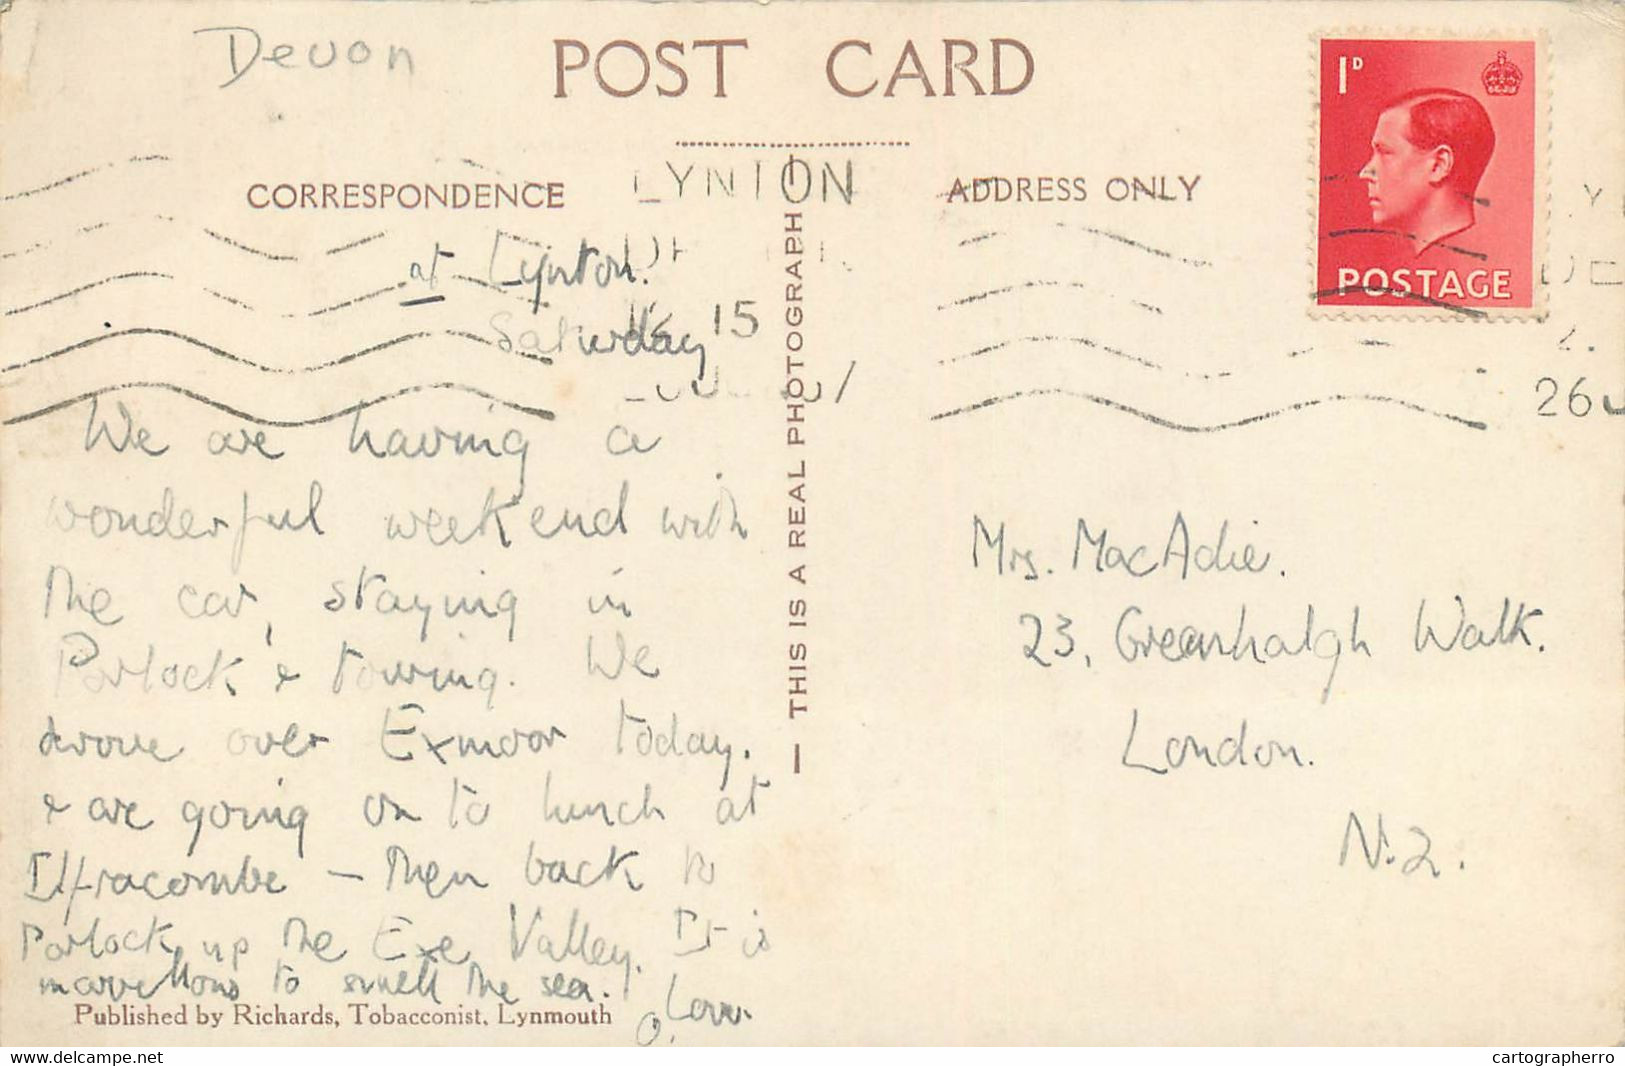 Devon
POST CARD
CORRESPONDENCE
ADDRESS ONLY
1D
POSTAGE
LYNTON
15
26
THIS IS A REAL PHOTOGRAPH
at Lynton.
Saturday
We are having a
wonderful weekend with
the car, staying in
Porlock & touring. We
drove over Exmoor today.
& are going on to lunch at
Ilfracombe – then back to
Porlock up the Exe Valley. It is
marvellous to smell the sea.
Published by Richards, Tobacconist, Lynmouth
Mrs. MacAdie.
23, Greenhalgh Walk.
London.
N.2.
delcampe.net
cartographerro